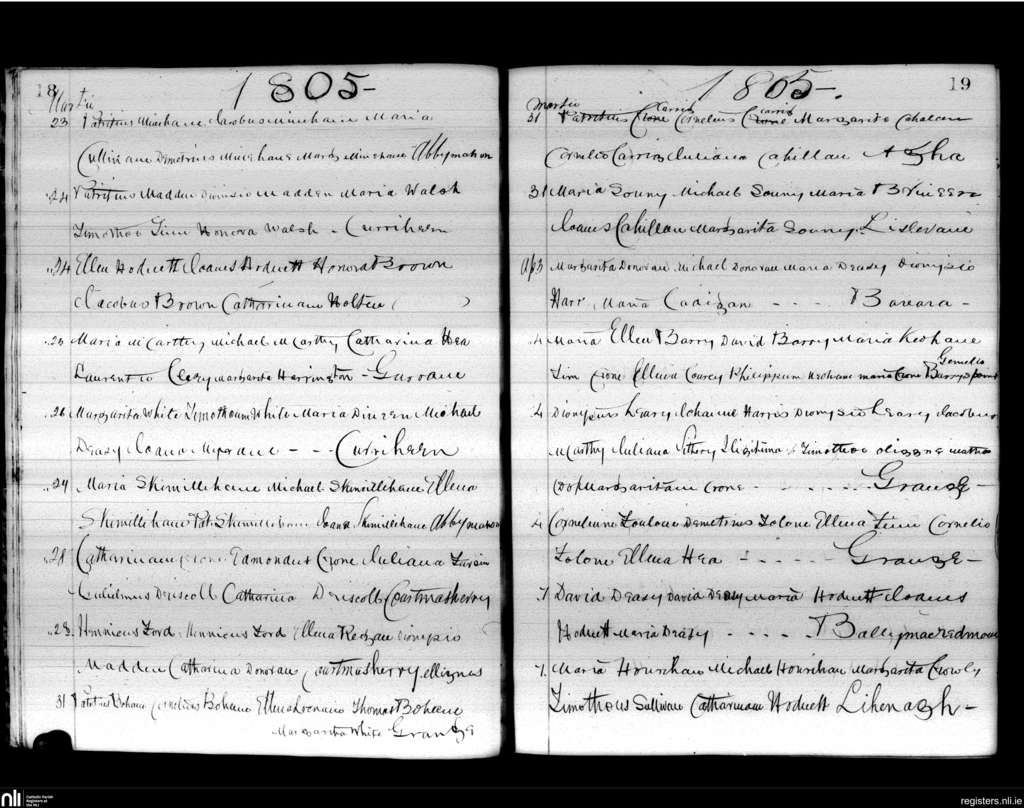 18 1805-
Martii
23 Patritius Minihane Jacobus Minihane Maria
Cullinane Demetrius Minihane Marg Minihane Abbymahon
24 Patritius Madden Dionisio Madden Maria Walsh
Timotheo Finn Honora Walsh - Curriheen
24 Ellen Hodnett Joanes Hodnett Honora Brown
Jacobus Brown Catharinam Holten ( )
25 Maria McCarthy Michael McCarthy Catharina Hea
Laurentio Clery Margarita Herrington - Garrane
26 Margarita White Timotheum White Maria Dineen Michael
Deasy Joana - - - Curriheen
27 Maria Skimillihane Michael Skimillihane Ellena
Skimillihane Pat. Skimillihane Joana Skimillihane Abbymahon
28 Catharinam Crone Edmondus Crone Juliana
Gulielmus Driscoll Catharina Driscoll Courtmasherry
28 Henricus Ford Henricus Ford Ellena Dionysio
Madden Catharina Donovan Courtmasherry
31 Patritius Bohane Cornelius Bohane Ellena Thomas Boheene
Margarita White Grange
1805-. 19
Martii
31 Patritius Crone Carrig Cornelius Crone Carrig Margarita Cahalan
Cornelio Carrig Juliana Cahillan Agha
31 Maria Sonny Michael Sonny Maria
Joanes Cahillan Margarita Sonny. Lislevane
Ap 3 Margarita Donovan Michael Donovan Maria Deasy Dionysio
Harr, Maria Cadigan - - - - Barcara -
4 Maria Ellen Barry David Barry Maria Keohane
Cornelio
Tim Crone Ellena Courcy Philippum Maria Crone Barryspoint
4 Dionysius Leary Harris Dionysio Leary Jacobus
McCarthy Juliana Timotheo
Margaritam Crone - - - - - Grange -
4 Demetrius Tolone Ellena Finn Cornelio
Tolone Ellena Hea - - - - - Grange -
7 David Deasy David Deasy Maria Hodnett Joanes
Hodnett Maria Deasy - - - - Ballymacredmond
7. Maria Hourihan Michael Hourihan Margarita Crowly
Timotheus Sullivan Catharinam Hodnett Likenagh -
nli Catholic Parish Registers at the NLI
registers.nli.ie